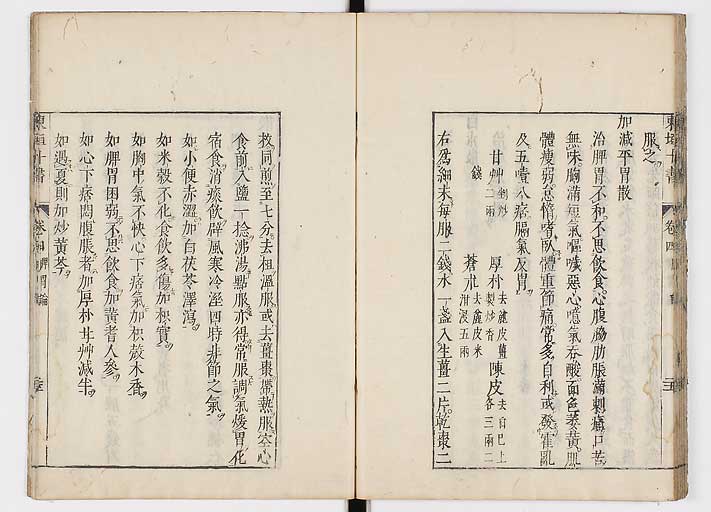 服之
加減平胃散
治脾胃不和不思飲食心腹脇肋脹滿刺痛口苦
無味胸滿短氣嘔噦惡心噫氣吞酸面色萎黃肌
體瘦弱怠惰嗜臥體重節痛常多自利或發霍亂
及五噎八痞膈氣反胃
甘艸剉炒二兩 厚朴去麄皮薑製炒香 陳皮去白已上各三兩二
錢 蒼朮去麄皮米泔浸五兩
右爲細末每服二錢水一盞入生薑二片乾棗二
枚同煎至七分去柤溫服或去薑棗帶熱服空心
食前入鹽一捻沸湯點服亦得常服調氣煖胃化
宿食消痰飲辟風寒冷溼四時非節之氣
如小便赤澀加白茯苓澤瀉
如米穀不化食飲多傷加枳實
如胸中氣不快心下痞氣加枳殼木香
如脾胃困弱不思飲食加黃耆人參
如心下痞悶腹脹者加厚朴甘艸減半
如遇夏則加炒黃芩
東垣十書 卷四
東垣十書 卷四 脾胃論